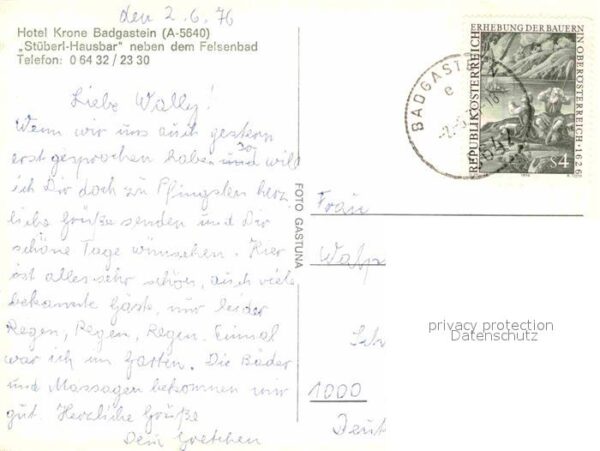 den 2. 6. 76
Hotel Krone Badgastein (A-5640)
„Stüberl-Hausbar" neben dem Felsenbad
Telefon: 0 64 32 / 23 30
Liebe Wally!
Wenn wir uns auch gestern
erst gesprochen haben und so will
ich Dir doch zu Pfingsten herz
liche Grüße senden und Dir
schöne Tage wünschen. Hier
ist alles sehr schön, auch viele
bekannte Gäste, nur leider
Regen, Regen, Regen. Einmal
war ich im Garten. Die Bäder
und Massagen bekommen mir
gut. Herzliche Grüße
Dein Gretchen
FOTO GASTUNA
REPUBLIK ÖSTERREICH
ERHEBUNG DER BAUERN
IN OBERÖSTERREICH · 1626
S4
BADGASTEIN
e
Frau
1000
privacy protection
Datenschutz